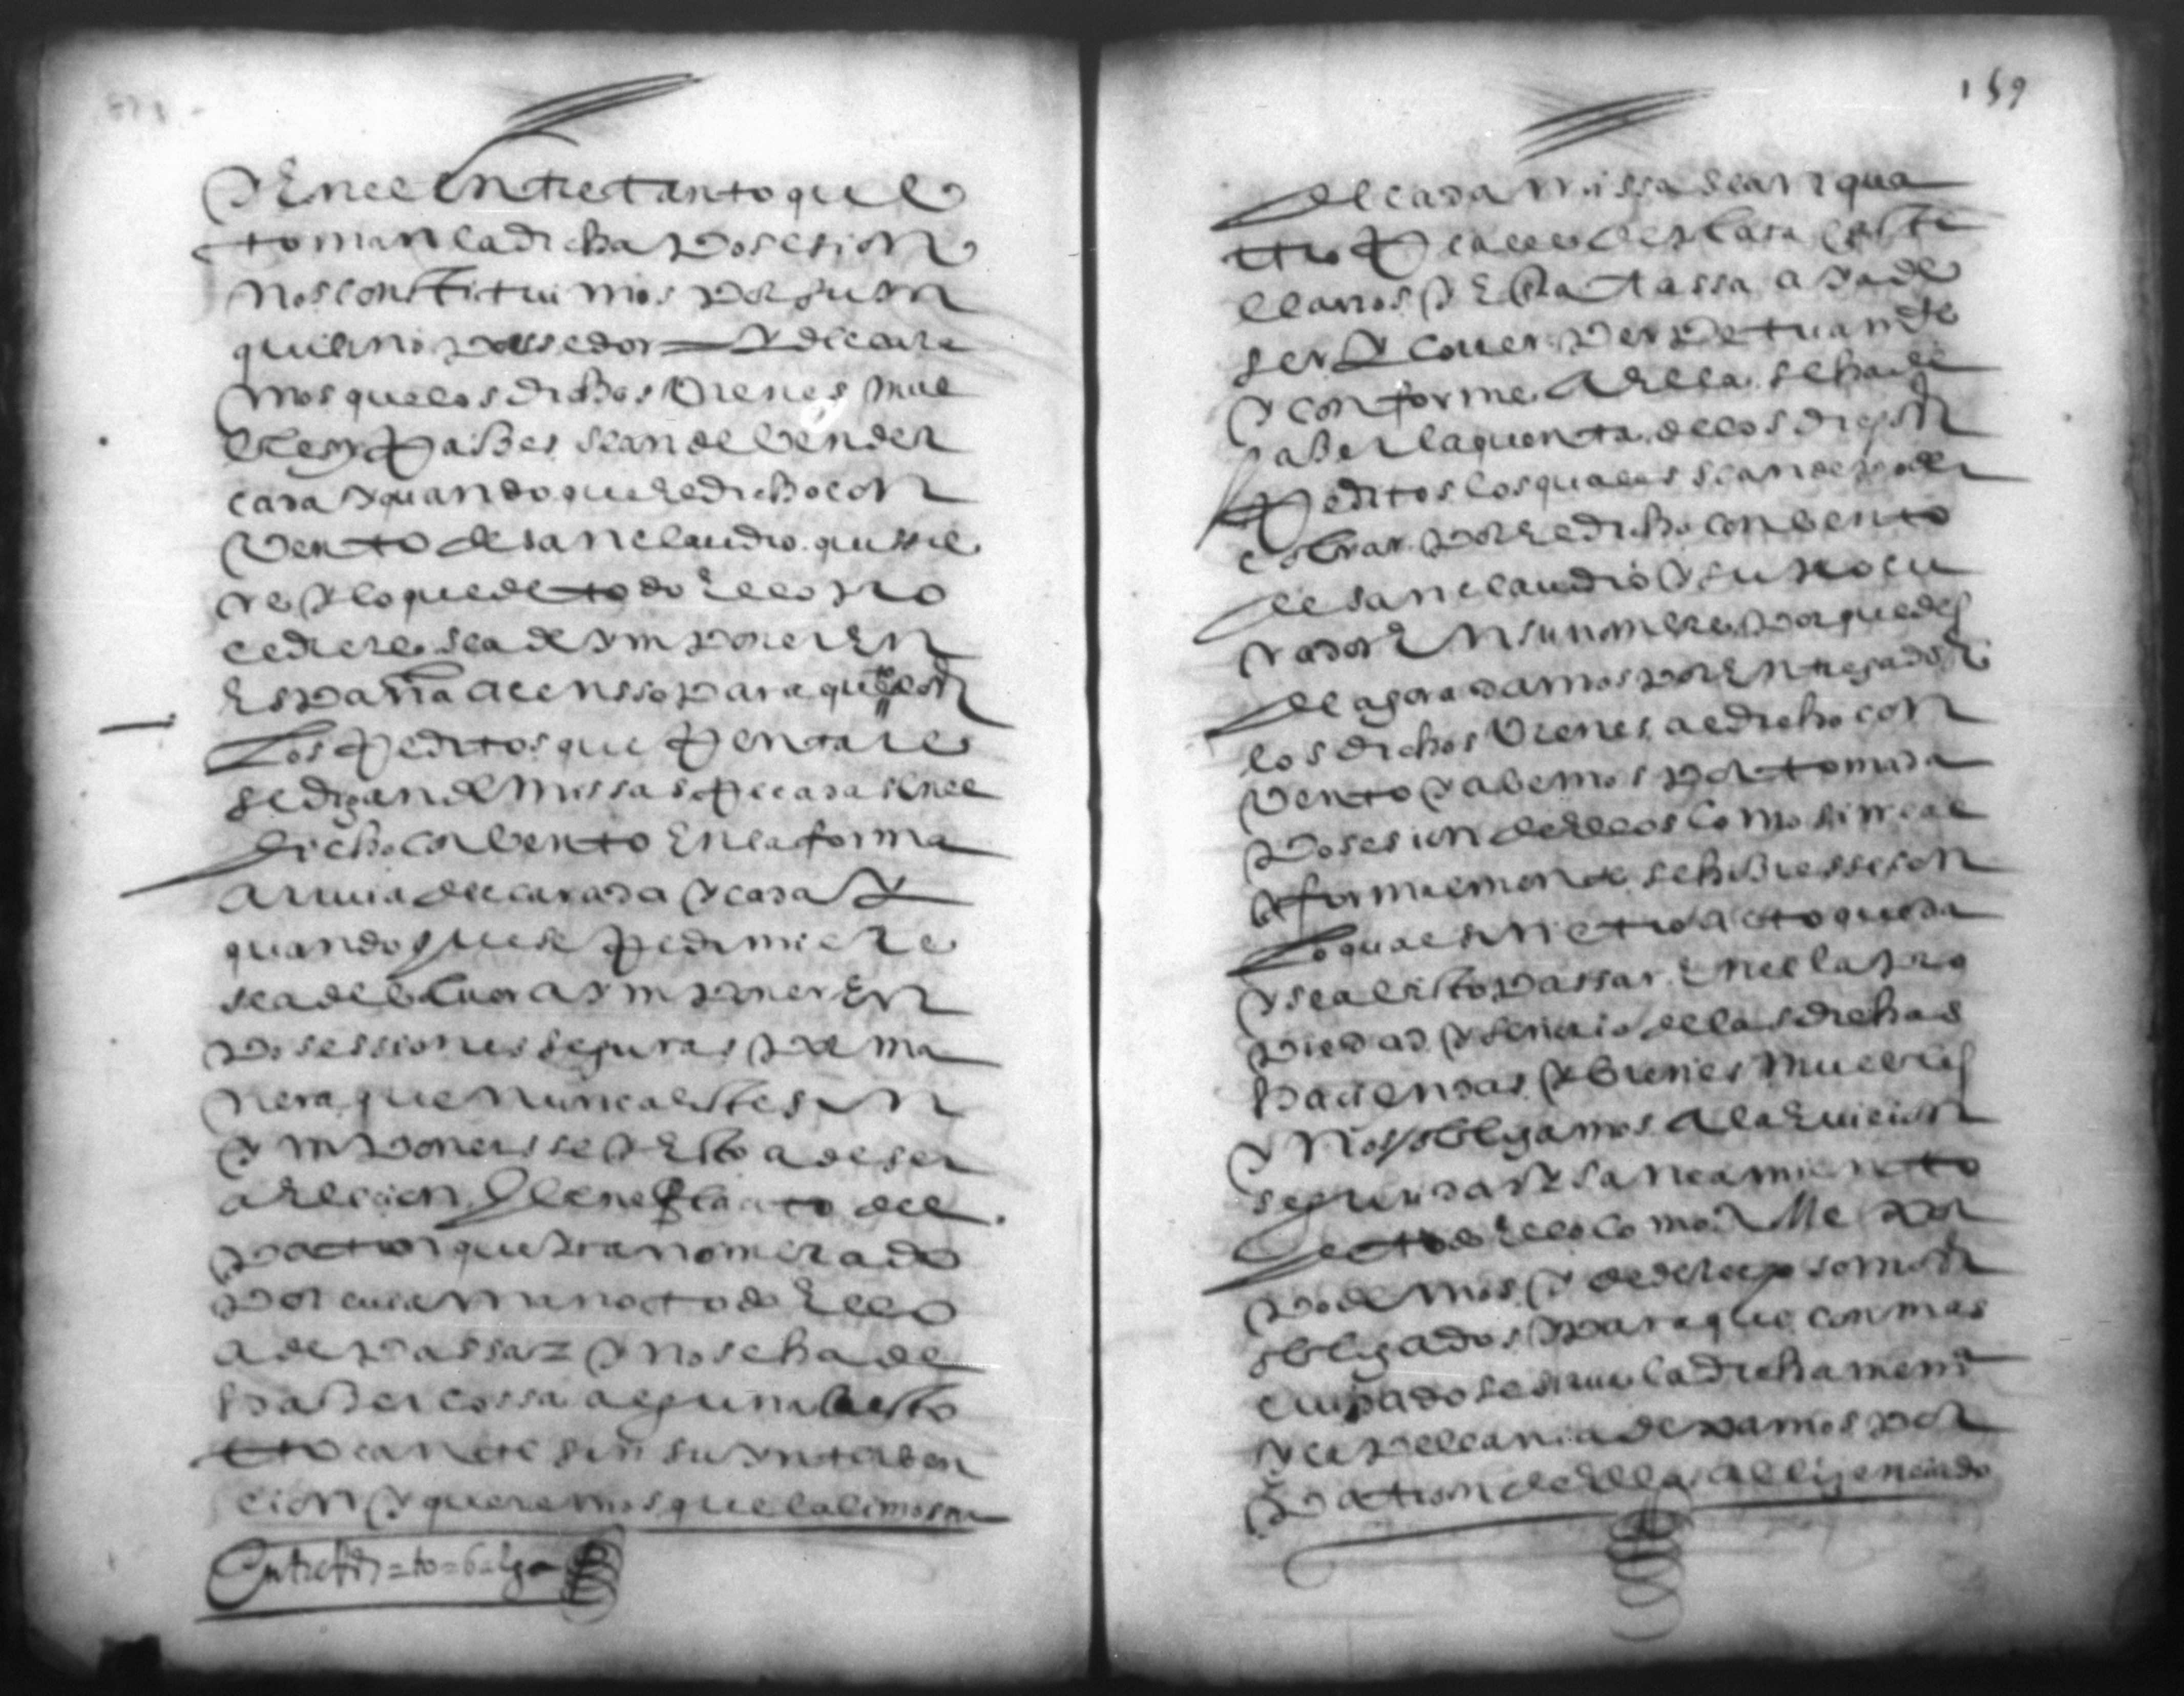 Y En el Entretanto que
toman la dicha Posesion
nos constituimos Por su yn
quilino posedor Y declara
mos que los dichos Vienes mue
bles y Raises sean de bender
cada y quando que El dicho con
Vento de san claudio quisie
re y lo que de todo Ello pro
cediere sea de ymponer En
España a censso Para que con
Los Reditos que Rentare
se digan de missas Reçadas En el
dicho conbento En la forma
arriua declarada y cada Y
quando que se Redimiere
sea de boluer a ymponer En
Posessiones seguras y de ma
nera que nunca este sin
ymponersse y Esto a de ser
a Elecion y beneplacito del
Patron que yra nombrado
Por cuia mano todo Ello
a de Passar y no se ha de
haBer cossa alguna a esto
tocante sin su ynterben
cion y queremos que la limosna
Entre Rs = to = balga
159
de cada missa sean qua
tro Reales de plata caste
llanos y Esta tassa a de
ser y correr Perpetuamte
y conforme a Ella se ha de
haBer la quenta de los dichos
Reditos los quales sean de poder
cobrar Por El dicho conbento
de san claudio y su Procu
rador En su nombre Porque des
de agora damos por Entregado de
los dichos Vienes al dicho con
Vento y abemos Por tomada
Posesion de Ellos como si real
y formalmente se hubiesse con
Lo qual sin otro acto queda
y sea bisto Passar En el la Pro
Piedad y señorio de las dichas
haciendas y bienes muebles
y Nos obligamos a la Euicion
seguridad y saneamiento
de todo Ello como mejor
Podemos y de derecho somos
obligados y Para que con mas
cuidado se sirua la dicha memª
y capellania dejamos Por
Patron de Ella al ligenciado